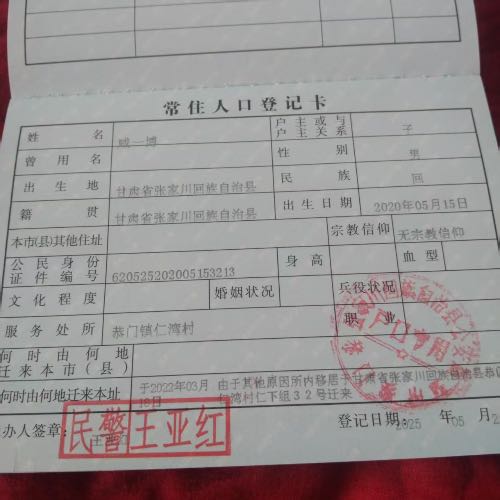 常住人口登记卡
姓名 一博 户主或与户主关系 子
曾用名 性别 男
出生地 甘肃省张家川回族自治县 民族 回
籍贯 甘肃省张家川回族自治县 出生日期 2020年05月15日
本市(县)其他住址 宗教信仰 无宗教信仰
公民身份证件编号 620525202005153213 身高 血型
文化程度 婚姻状况 兵役状况
服务处所 恭门镇仁湾村 职业
何时由何地迁来本市(县)
何时由何地迁来本址 于2022年03月 由于其他原因所内移居于甘肃省张家川回族自治县恭
湾村仁下组32号迁来
办人签章: 民警王亚红 登记日期: 2025 年 05 月